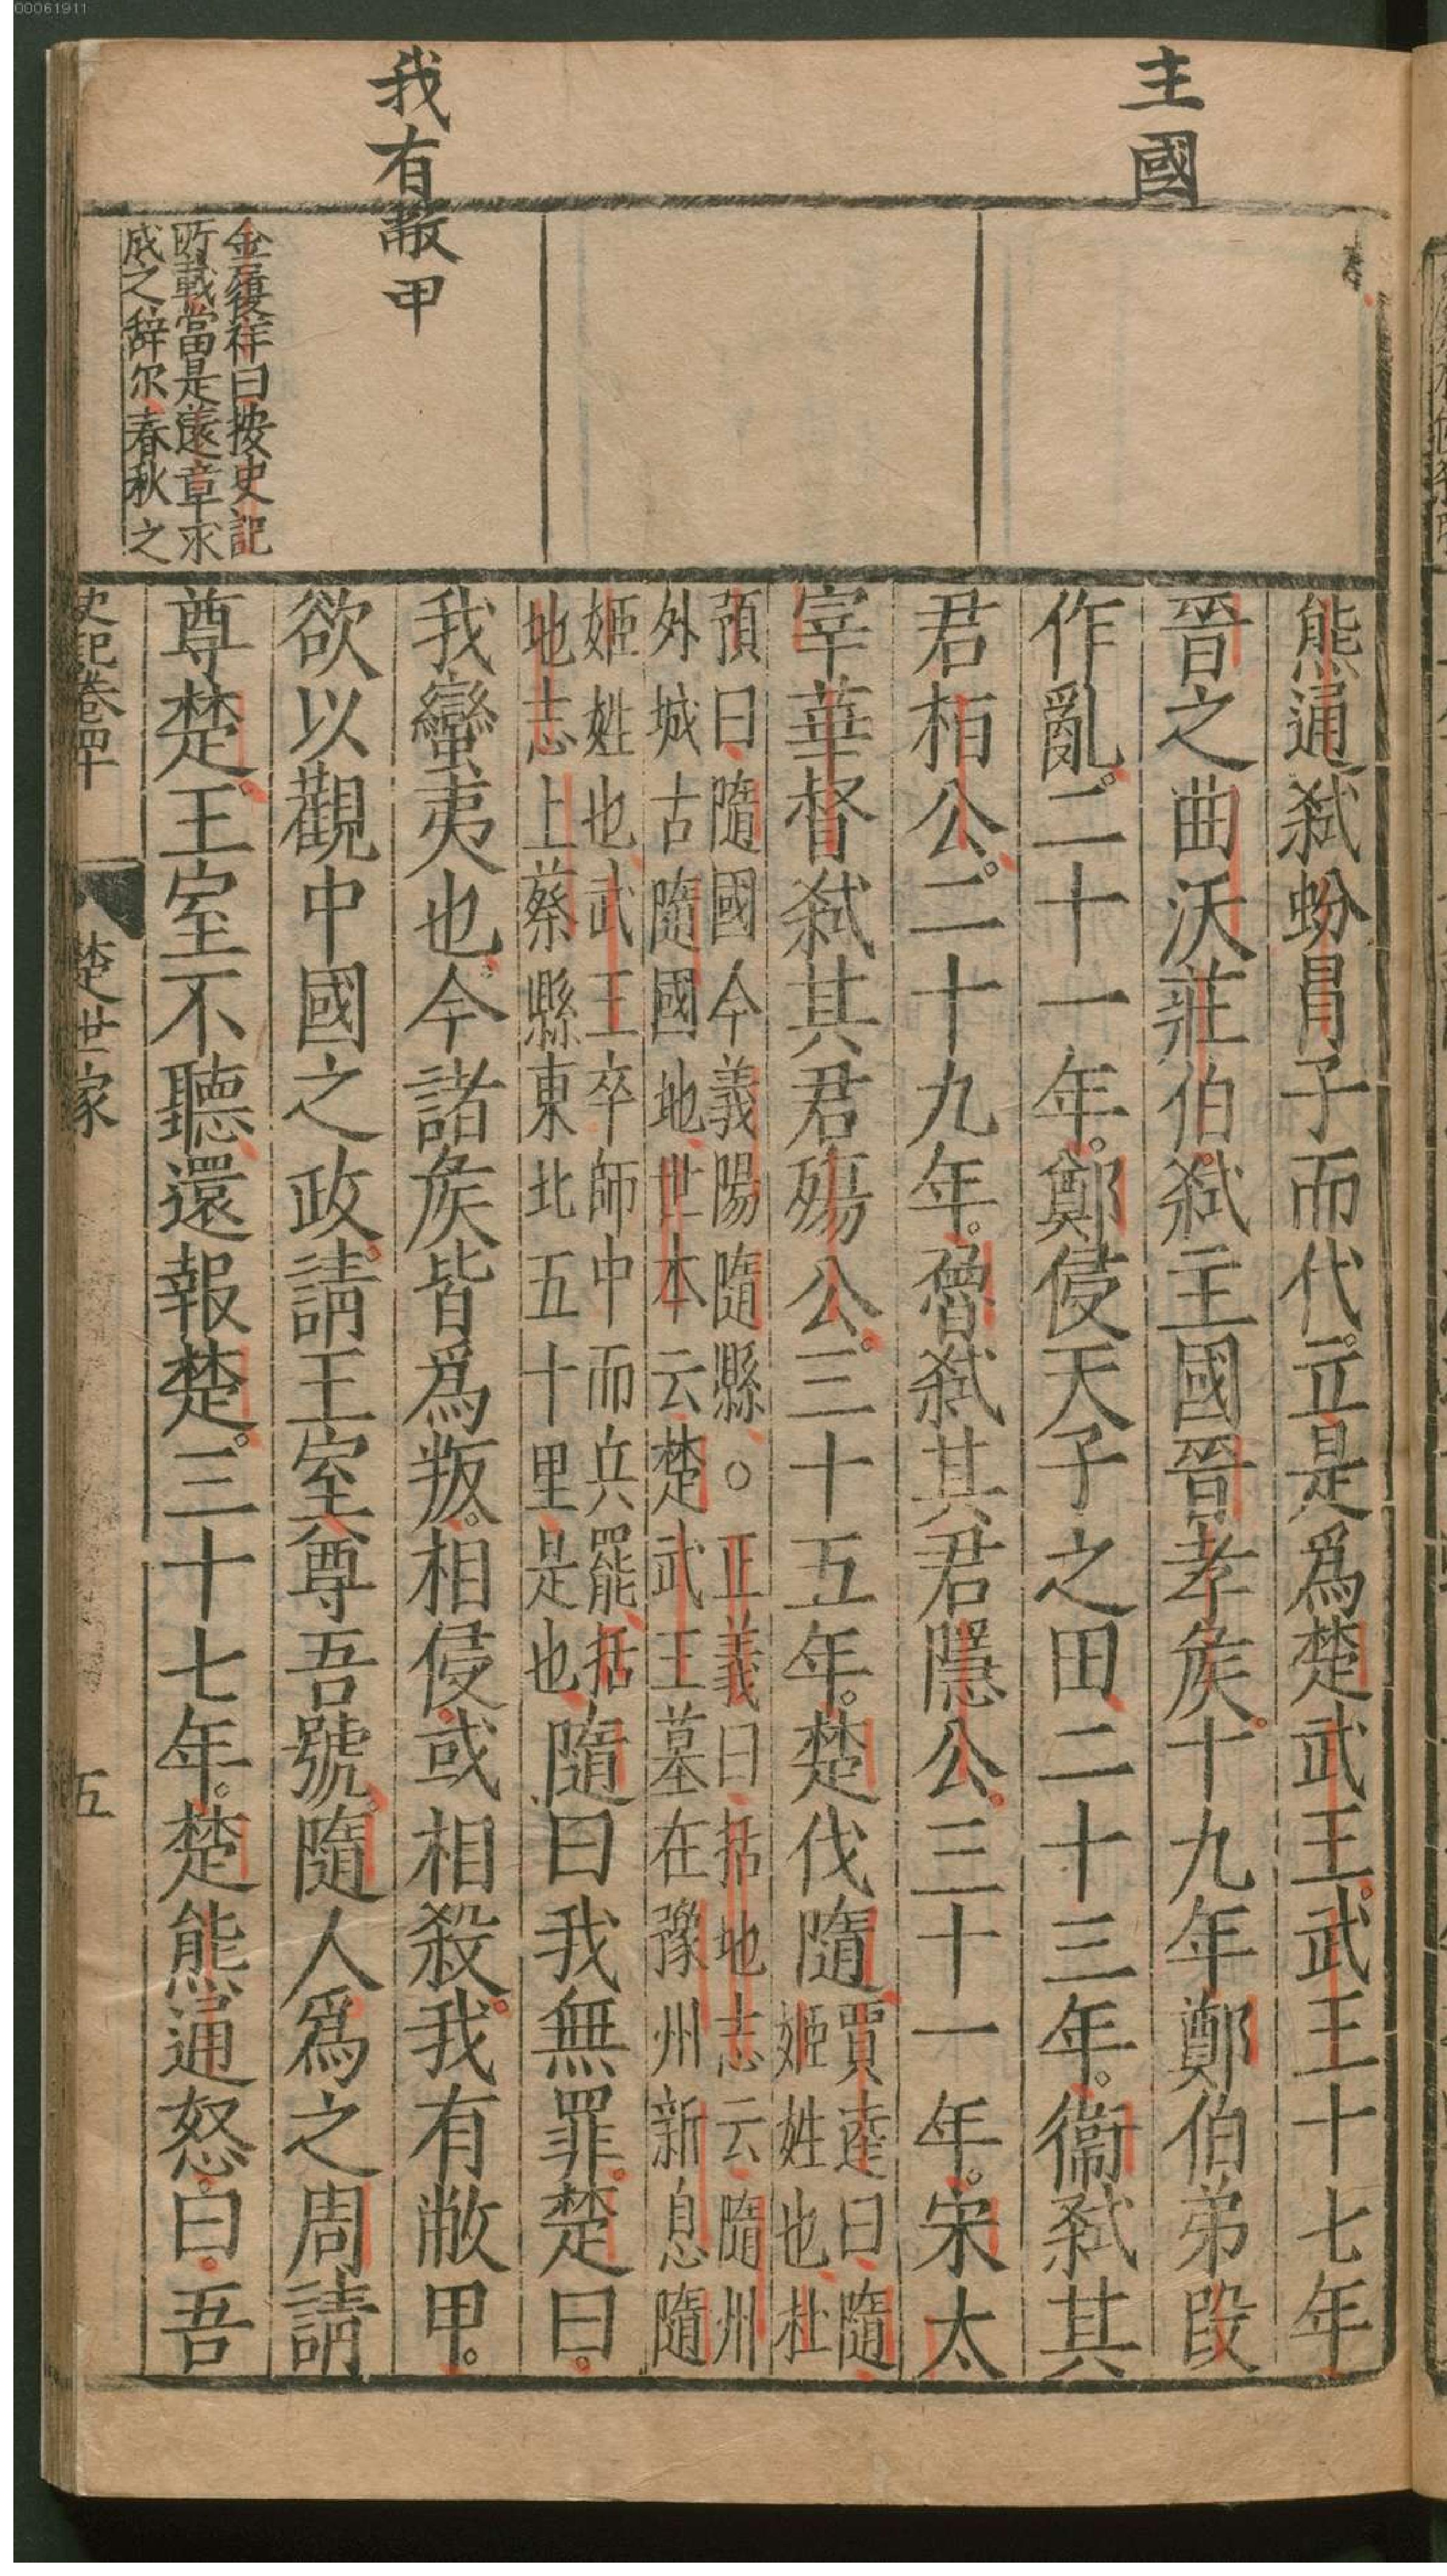 00061911
主國
我有敝甲
金履祥曰按史記
所載當是薳章求
成之辞尔春秋之
熊通弑蚡冒子而代立是爲楚武王武王十七年
晉之曲沃莊伯弑主國晉孝侯十九年鄭伯弟段
作亂二十一年鄭侵天子之田二十三年衞弑其
君桓公二十九年魯弑其君隱公三十一年宋太
宰華督弑其君殤公三十五年楚伐隨
賈逵曰隨
姬姓也杜
預曰隨國今義陽隨縣○正義曰括地志云隨州
外城古隨國地世本云楚武王墓在豫州新息隨
姬姓也武王卒師中而兵罷括
地志上蔡縣東北五十里是也
隨曰我無罪楚曰
我蠻夷也今諸侯皆爲叛相侵或相殺我有敝甲
欲以觀中國之政請王室尊吾號隨人爲之周請
尊楚王室不聽還報楚三十七年楚熊通怒曰吾
史記卷四十
楚世家
五